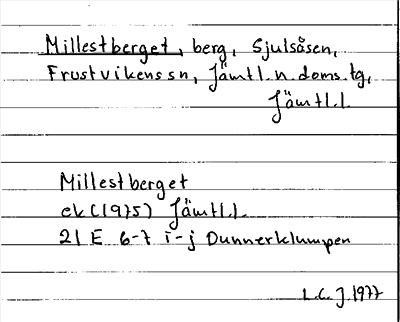 Millestberget, berg, Sjulsåsen,
Frostvikens sn, Jämtl. n. doms. tg,
Jämtl. l.
Millestberget
ek (1975) Jämtl. l.
21 E 6-7 i-j Dunnerklumpen
L.C.J. 1977